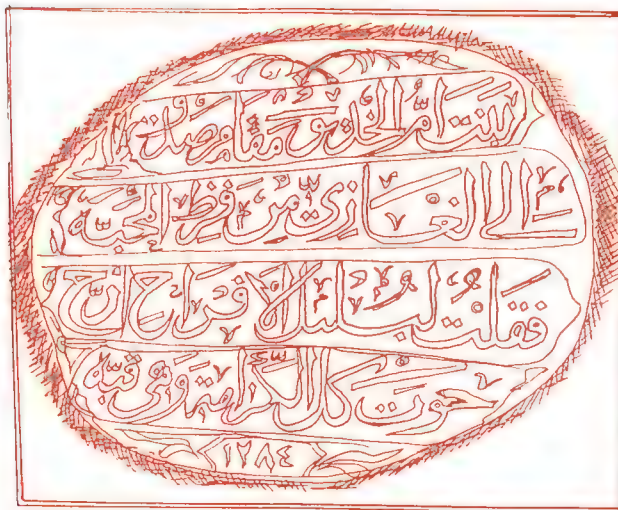 بنت أم الخديو مقام صدق
إلى الغازي من فرط المحبة
فقلت لبلبل الأفراح أرخ
حوت كل الكرامة وهي قبة
١٢٨٤